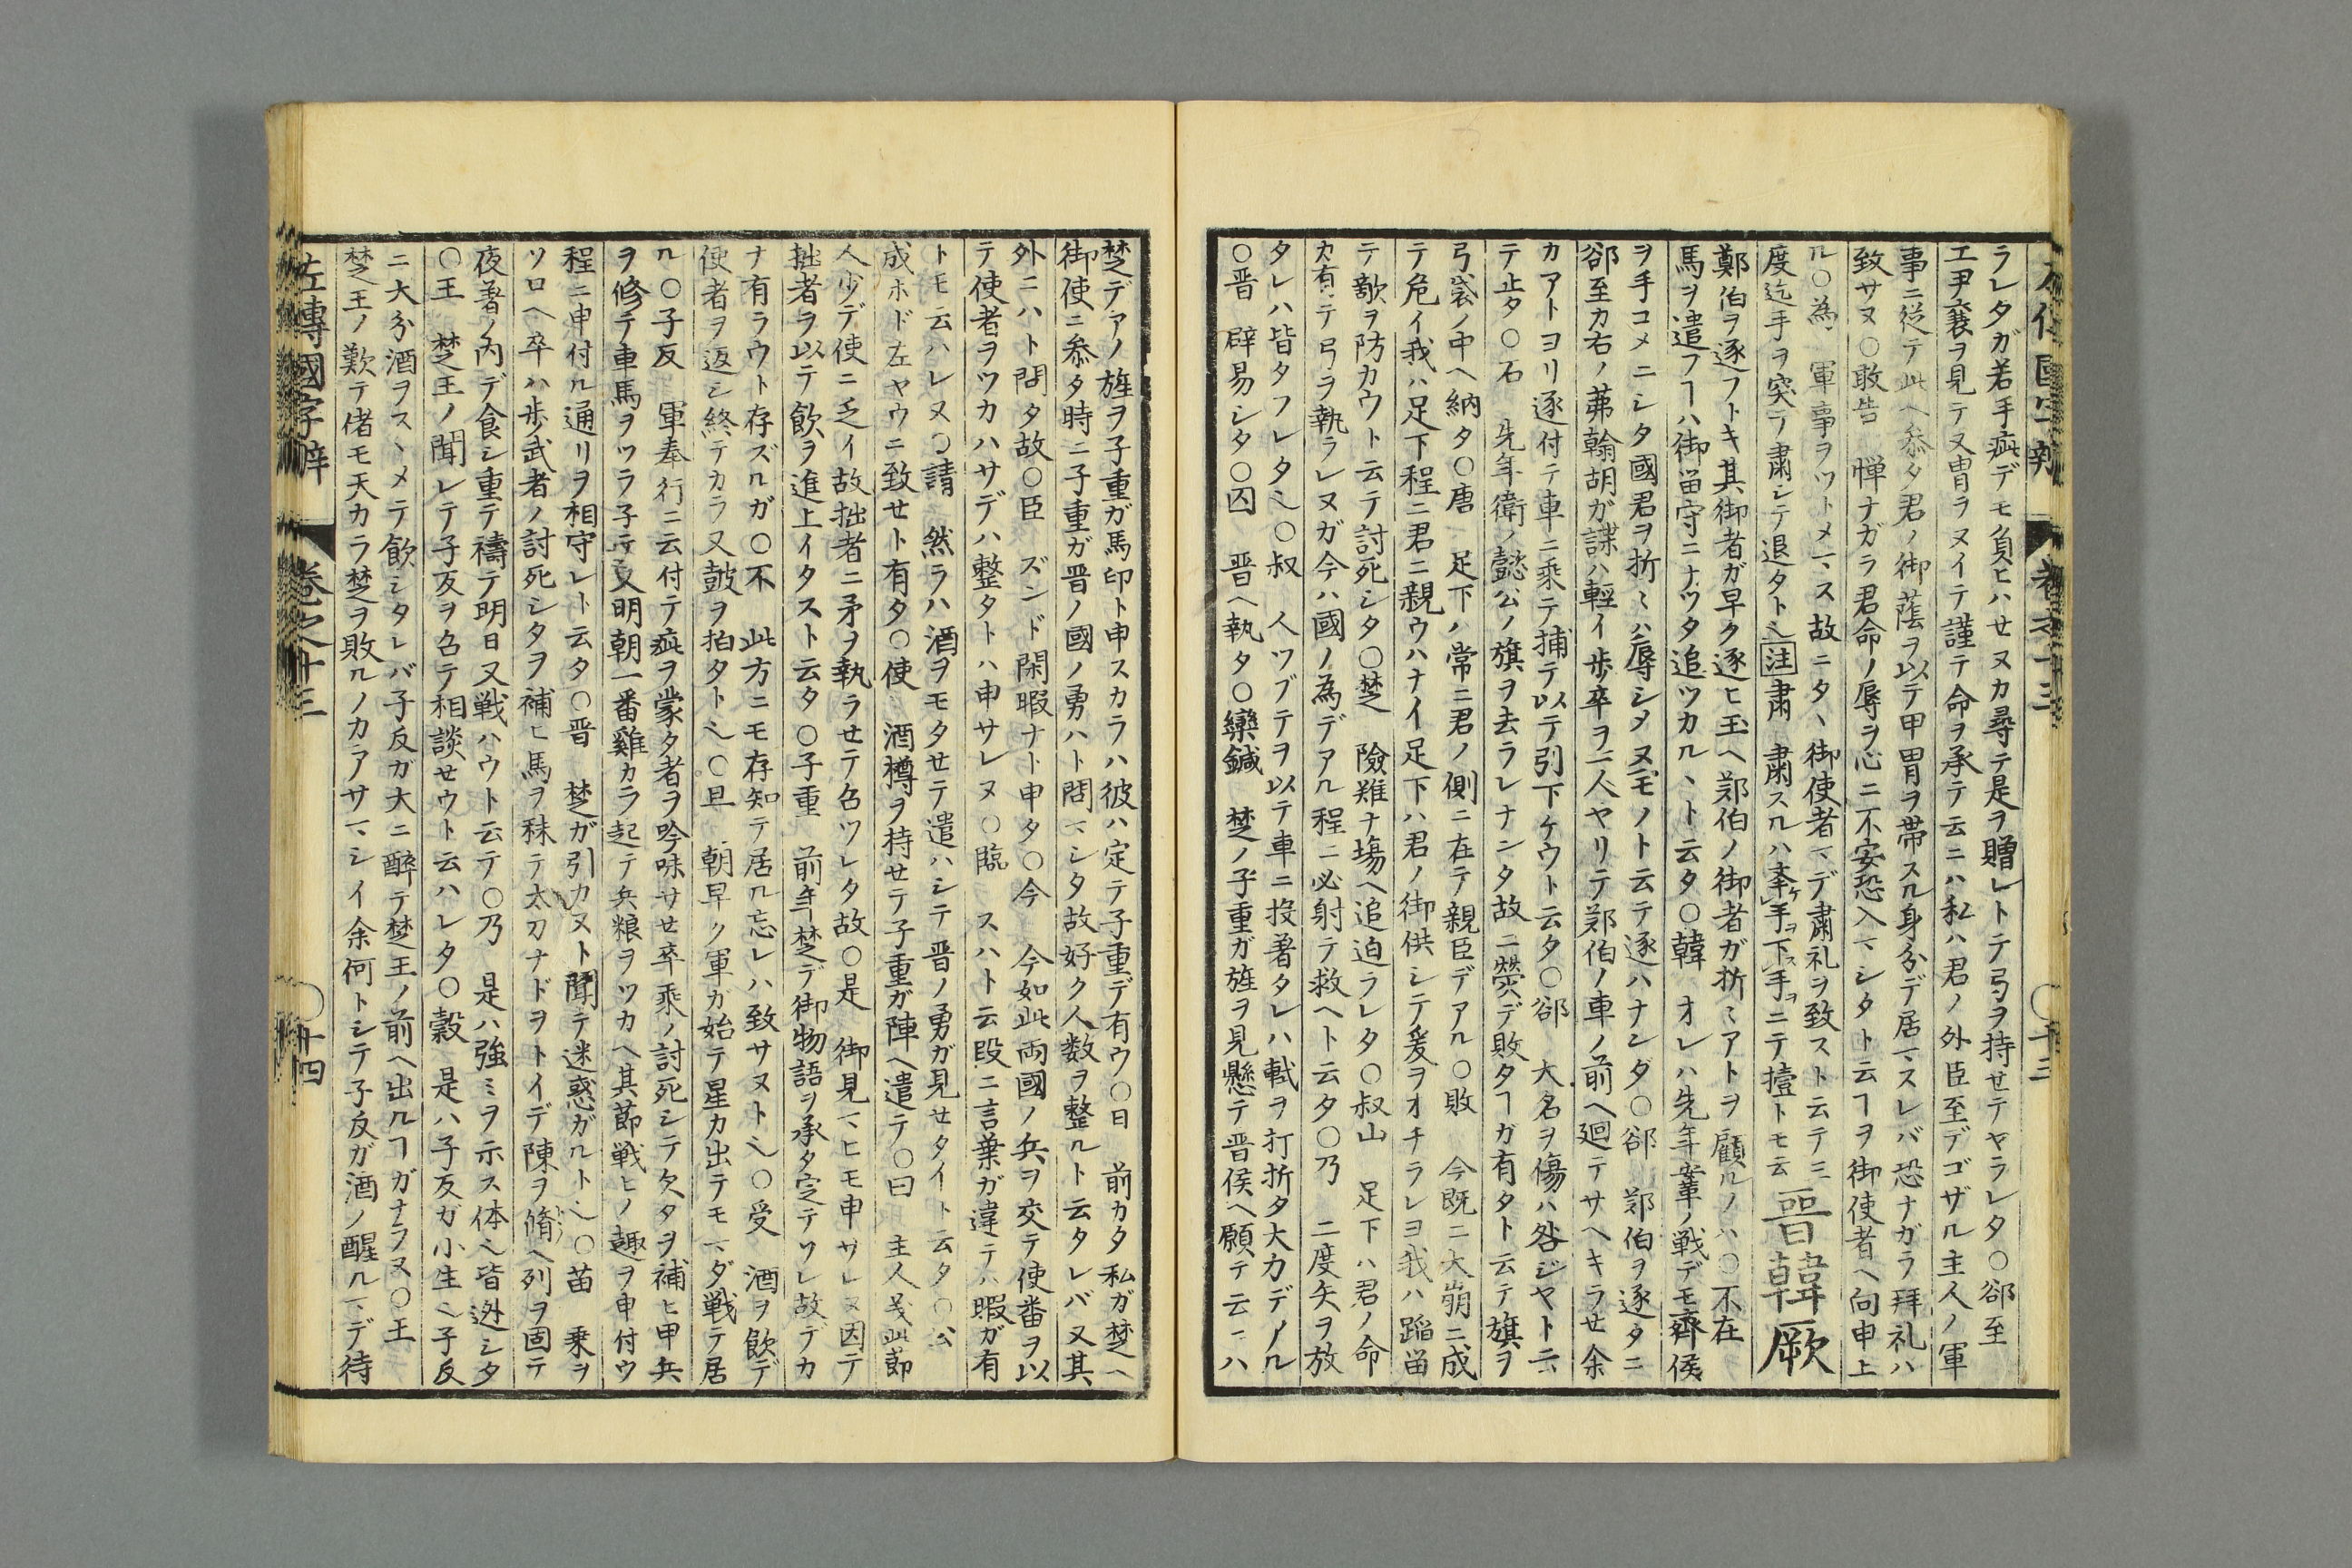 ラレタガ若手疵デモ負ヒハセヌカ尋テ是ヲ贈レトテ弓ヲ持セテヤラレタ○郤至
エ甲裳ヲ見テ又冑ヲヌイテ謹テ命ヲ承テ云ニハ私ハ君ノ外臣至デゴザル主人ノ軍
事ニ従テ此ヘ参タ君ノ御蔭ヲ以テ甲冑ヲ帯スル身分デ居マスレバ恐ナガラ拜礼ハ
致サヌ○敢告 憚ナガラ君命ノ辱ヲ心ニ不安恐入マシタト云ヿヲ御使者ヘ向申上
ル○為 軍事ヲツトメマス故ニタヽ御使者マデ肅礼ヲ致スト云テ三
度迄手ヲ突テ肅シテ退タト也注肅 肅スルハ拳手ヲ下手ヲニテ擅トモ云 晋韓厥
鄭伯ヲ逐フトキ其御者ガ早ク逐ヒ玉ヘ鄭伯ノ御者ガ折々アトヲ顧ルノハ○不在
馬ヲ遣フヿハ御畄守ニナツタ追ツカルヽト云タ○韓 オレハ先年鞌ノ戦デモ齊侯
ヲ手コメニシタ國君ヲ折々ハ辱シメヌモノト云テ逐ハナンダ○郤 鄭伯ヲ逐タニ
郤至カ右ノ茀翰胡ガ謀ハ輕イ歩卒ヲ一人ヤリテ鄭伯ノ車ノ前ヘ廻テサヘキラセ余
カアトヨリ逐付テ車ニ乘テ捕テ以テ引下ケウト云タ○郤 大名ヲ傷ハ咎ジヤト云
テ止タ○石 先年衛ノ懿公ノ旗ヲ去ラレナンタ故ニ熒デ敗タヿガ有タト云テ旗ヲ
弓袋ノ中ヘ納タ○唐 足下ハ常ニ君ノ側ニ在テ親臣デアル○敗 今既ニ大崩ニ成
テ危イ我ハ足下程ニ君ニ親ウハナイ足下ハ君ノ御供シテ爰ヲオチラレヨ我ハ蹈畄
テ敵ヲ防カウト云テ討死シタ○楚 險難ナ場ヘ追迫ラレタ○叔山 足下ハ君ノ命
カ有テ弓ヲ執ラレヌガ今ハ國ノ為デアル程ニ必射テ救ヘト云タ○乃 二度矢ヲ放
タレハ皆タフレタ也○叔 人ツブテヲ以テ車ニ投著タレハ軾ヲ打折タ大力デノル
○晋 辟易シタ○囚 晋ヘ執タ○欒鍼 楚ノ子重ガ旌ヲ見懸テ晋侯ヘ願テ云マハ
楚デアノ旌ヲ子重ガ馬印ト申スカラハ彼ハ定テ子重デ有ウ○日 前カタ私ガ楚ヘ
御使ニ参タ時ニ子重ガ晋ノ國ノ勇ハト問マシタ故好ク人数ヲ整ルト云タレバ又其
外ニハト問タ故○臣 ズンド閑暇ナト申タ○今 今如此両國ノ兵ヲ交テ使番ヲ以
テ使者ヲツカハサデハ整タトハ申サレヌ○臨 スハト云段ニ言葉ガ違テハ暇ガ有
トモ云ハレヌ○請 然ラハ酒ヲモタセテ遣ハシテ晋ノ勇ガ見セタイト云タ○公
成ホド左ヤウニ致セト有タ○使 酒樽ヲ持セテ子重ガ陣ヘ遣テ○曰 主人義此節
人少デ使ニ乏イ故拙者ニ矛ヲ執ラセテ召ツレタ故○是 御見マヒモ申サレヌ因テ
拙者ラ以テ飲ヲ進上イタスト云タ○子重 前年楚デ御物語ヲ承タ定テソレ故デカ
ナ有ラウト存ズルガ○不 此方ニモ存知テ居ル忘レハ致サヌト也○受 酒ヲ飲デ
使者ヲ返シ終テカラ又皷ヲ拍タト也○旦 朝早ク軍ガ始テ星カ出テモマダ戦テ居
ル○子反 軍奉行ニ云付テ疵ヲ蒙タ者ヲ吟味サセ卒乘ノ討死シテ欠タヲ補ヒ甲兵
ヲ修テ車馬ヲツラ子テ又明朝一番雞カラ起テ兵粮ヲツカヘ其節戦ヒノ趣ヲ申付ウ
程ニ申付ル通リヲ相守レト云タ○晋 楚ガ引カヌト聞テ迷惑ガルト也○苗 乗ヲ
ソロヘ卒ハ歩武者ノ討死シタヲ補ヒ馬ヲ秣テ太刀ナドヲトイデ陳ヲ脩ヘ列ヲ固テ
夜著ノ内デ食シ重テ禱テ明日又戦ハウト云テ○乃 是ハ強ミヲ示ス体也皆迯シタ
○王 楚王ノ聞レテ子反ヲ召テ相談セウト云ハレタ○穀 是ハ子反ガ小生也子反
ニ大分酒ヲスヽメテ飲シタレバ子反ガ大ニ醉テ楚王ノ前ヘ出ルヿガナラヌ○王
楚王ノ歎テ偖モ天カラ楚ヲ敗ルノカアサマシイ余何トシテ子反ガ酒ノ醒ルマデ待
左傳國字辯 卷之十三 ○十四